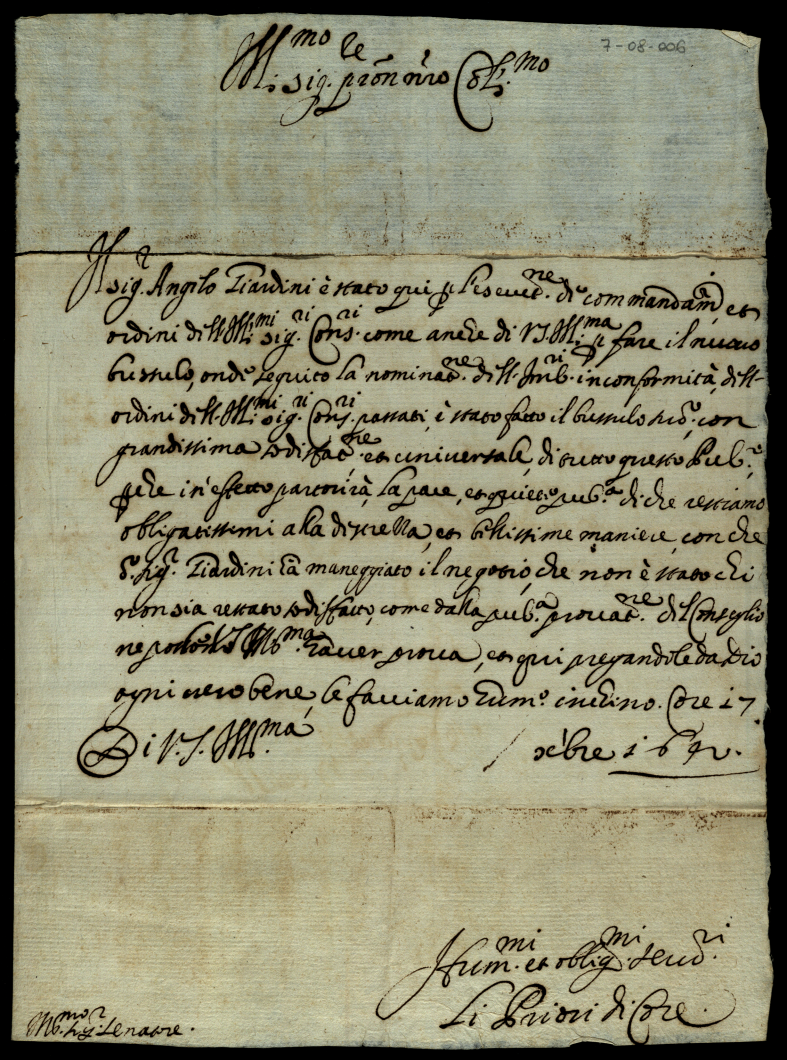 7-08-006
Ill.mo
sig.r pron nro Col.mo
Il sig.r Angilo Ziardini è stato qui p l'esecut.ne de commandam.i et
ordini dell'Ill.mi sig.ri Cons.ri come anche di V.S. Ill.ma p fare il nuovo
bussulo, onde seguito la nominat.ne dell' in conformità, dell'
ordini dell'Ill.mi sig.ri Cons.ri passati, è stato fatto il bussulo, con
grandissima sodisfat.ne et universale, di tutto questo Pub.o,
pche in effetto partorirà, la pace, et quiete pub.a di che restiamo
obligatissimi alla et bellissime maniere, con che
d.o sig.r Ziardini hà maneggiato il negotio, che non è stato chi
non sia restato sodisfatto, come dalla pub.a provat.ne del Conseglio
ne V.S. Ill.ma haver prova, et qui pregandole da Dio
ogni vero bene, le facciamo hum.o inchino. Core 17
Di V.S. Ill.ma
xbre 1692.
Hum.mi et oblig.mi serv.ri
Li Priori di Core.
Ill.mo sig.r Senatore.